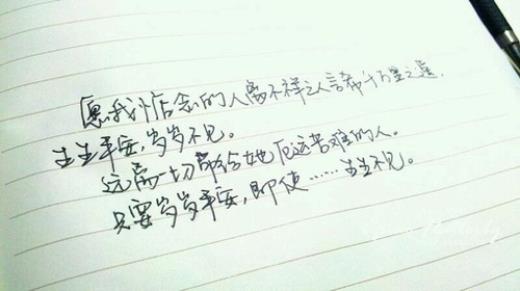 愿我惦念的人离不祥之人言希千万里之遥.
生生平安,岁岁不见。
远离一切带给她厄运苦难的人。
只要岁岁平安,即使……生生不见。